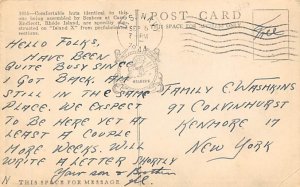 1053—Comfortable huts identical to this
one being assembled by Seabees at Camp
Endicott, Rhode Island, are speedily con-
structed on "Island X" from prefabricated
POST CARD
SPACE FOR
Free
HELLO FOLKS,
HAVE BEEN
QUITE BUSY SINCE
I GOT BACK. AM
STILL IN THE SAME
PLACE. WE EXPECT
TO BE HERE YET AT
LEAST A COUPLE
MORE WEEKS. WILL
WRITE A LETTER SHORTLY
Your son & Brother
FAMILY E WASHKINS
97
KENMORE 17
NEW YORK
THIS SPACE FOR MESSAGE